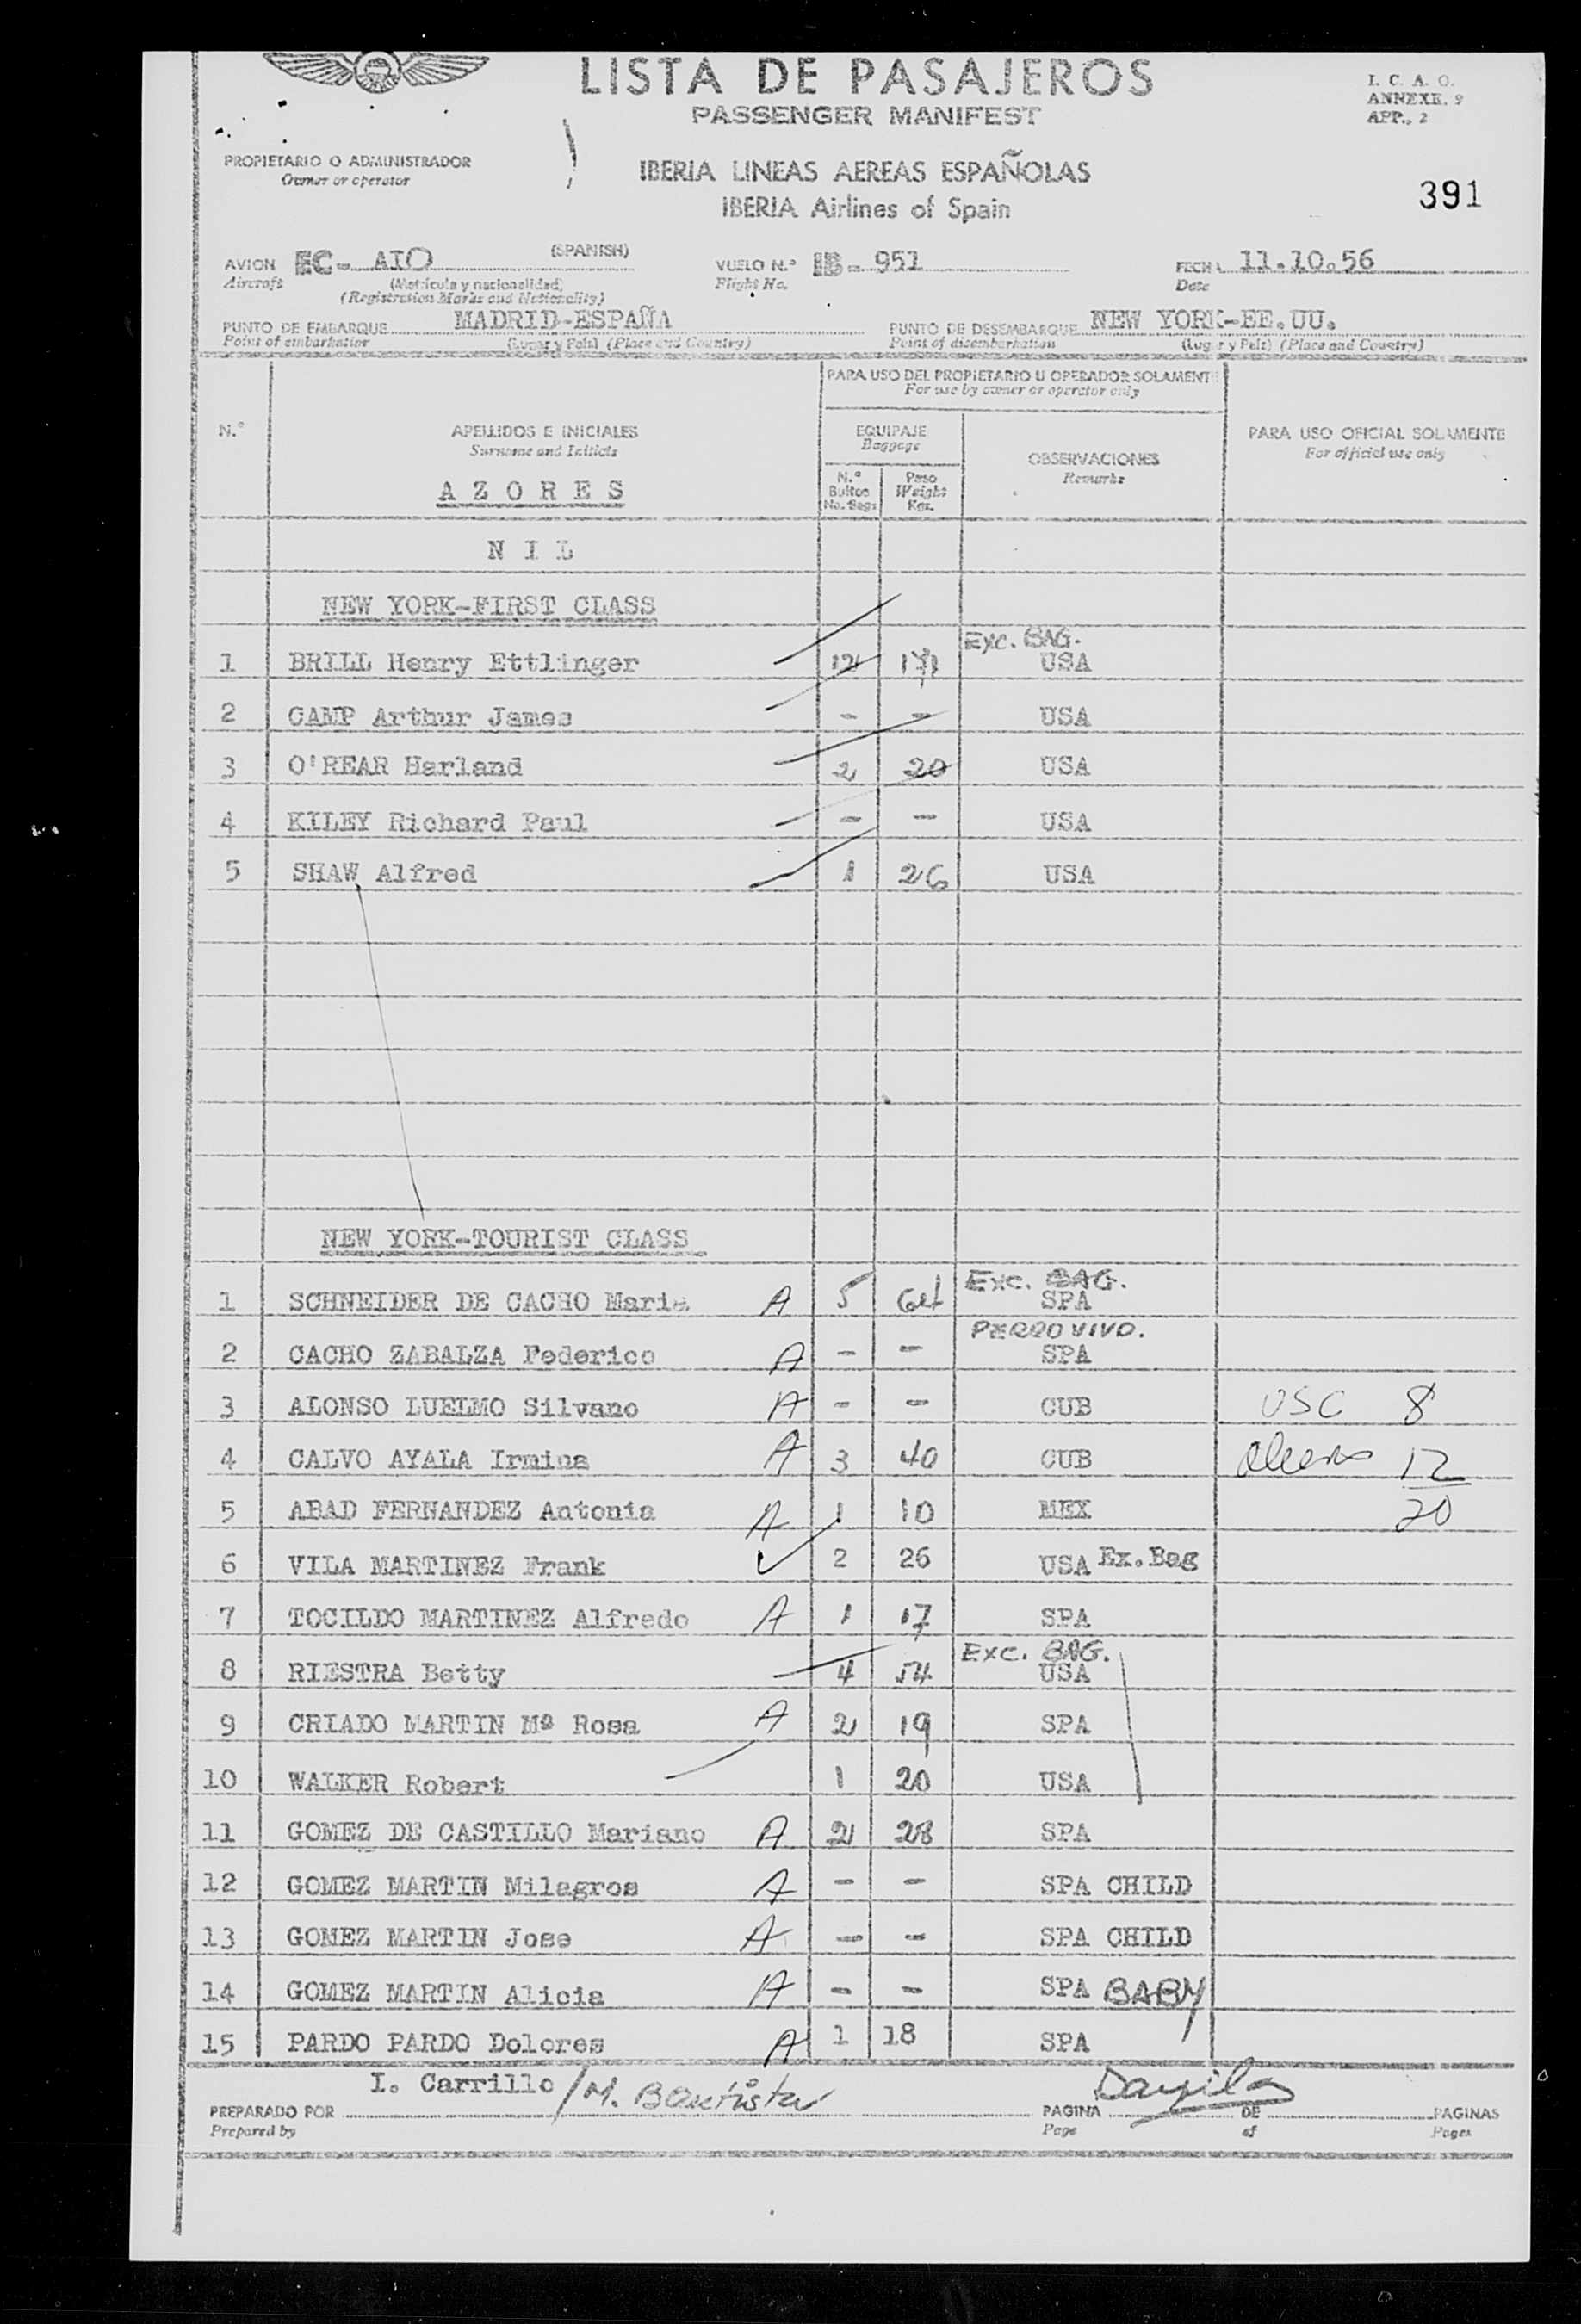 LISTA DE PASAJEROS
PASSENGER MANIFEST
I. C. A. O.
ANNEXE. 9
APP., 2
PROPIETARIO O ADMINISTRADOR
Owner or operator
IBERIA LINEAS AEREAS ESPAÑOLAS
IBERIA Airlines of Spain
391
AVION EC- AIO (SPANISH) VUELO N.º IB- 951 FECHA 11.10.56
Aircraft (Matrícula y nacionalidad) Flight No. Date
(Registration Marks and Nationality)
PUNTO DE EMBARQUE MADRID-ESPAÑA PUNTO DE DESEMBARQUE NEW YORK-EE.UU.
Point of embarkation (Lugar y País) (Place and Country) Point of disembarkation (Lugar y País) (Place and Country)
PARA USO DEL PROPIETARIO U OPERADOR SOLAMENTE
For use by owner or operator only
N.º APELLIDOS E INICIALES EQUIPAJE OBSERVACIONES PARA USO OFICIAL SOLAMENTE
Surname and Initials Baggage Remarks For official use only
A Z O R E S N.º Bultos No. Bags Peso Weight Kgs.
N I L
NEW YORK-FIRST CLASS
Exc. BAG.
1 BRILL Henry Ettlinger USA
2 CAMP Arthur James - - USA
3 O'REAR Harland 2 20 USA
4 KILEY Richard Paul - - USA
5 SHAW Alfred 1 26 USA
NEW YORK-TOURIST CLASS
Exc. BAG.
1 SCHNEIDER DE CACHO Maria A 5 64 SPA
PERRO VIVO.
2 CACHO ZABALZA Federico A - - SPA
3 ALONSO LUELMO Silvano A - - CUB USC 8
4 CALVO AYALA Irmina A 3 40 CUB Aliens 12
5 ABAD FERNANDEZ Antonia A 1 10 MEX 20
6 VILA MARTINEZ Frank 2 26 USA Ex.Bag
7 TOCILDO MARTINEZ Alfredo A 1 17 SPA
Exc. BAG.
8 RIESTRA Betty 4 54 USA
9 CRIADO MARTIN Mª Rosa A 2 19 SPA
10 WALKER Robert 1 20 USA
11 GOMEZ DE CASTILLO Mariano A 2 28 SPA
12 GOMEZ MARTIN Milagros A - - SPA CHILD
13 GOMEZ MARTIN Jose A - - SPA CHILD
14 GOMEZ MARTIN Alicia A - - SPA BABY
15 PARDO PARDO Dolores A 1 18 SPA
I. Carrillo/M. Bautista
PREPARADO POR PAGINA DE PAGINAS
Prepared by Page of Pages